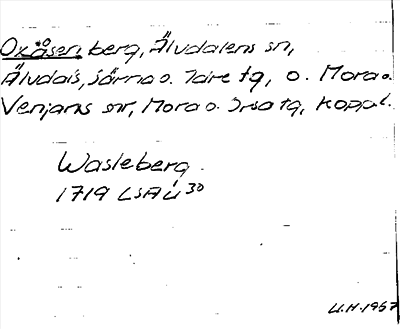 Oxåsen berg, Älvdalens sn,
Älvdals, Särna o. Idre tg, o. Mora o.
Venjans snr, Mora o. Orsa tg, Koppl.
Wasleberg.
1719 LSA Ü 30
U.H. 1967